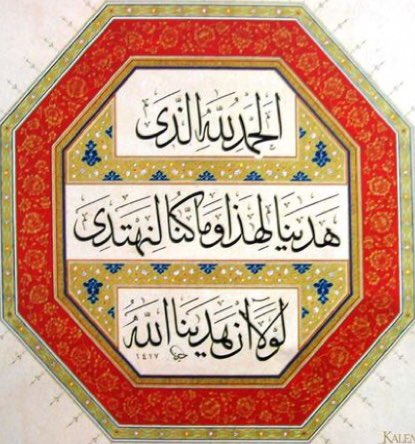 الحمد لله الذى
هدينا لهذا وما كنا لنهتدى
لولا ان هدينا الله
١٤١٧
KALEM